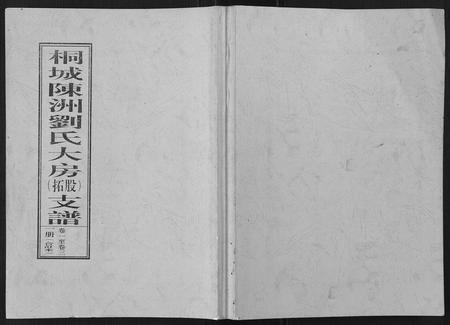 桐城陳洲劉氏大房(拓股)支譜
卷一至卷三
一册